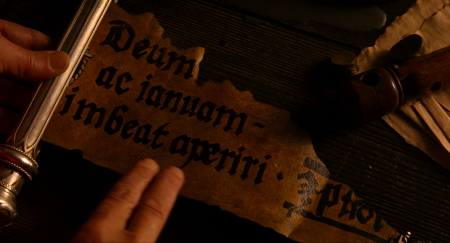 Deum
ac ianuam-
imbeat aperiri ·